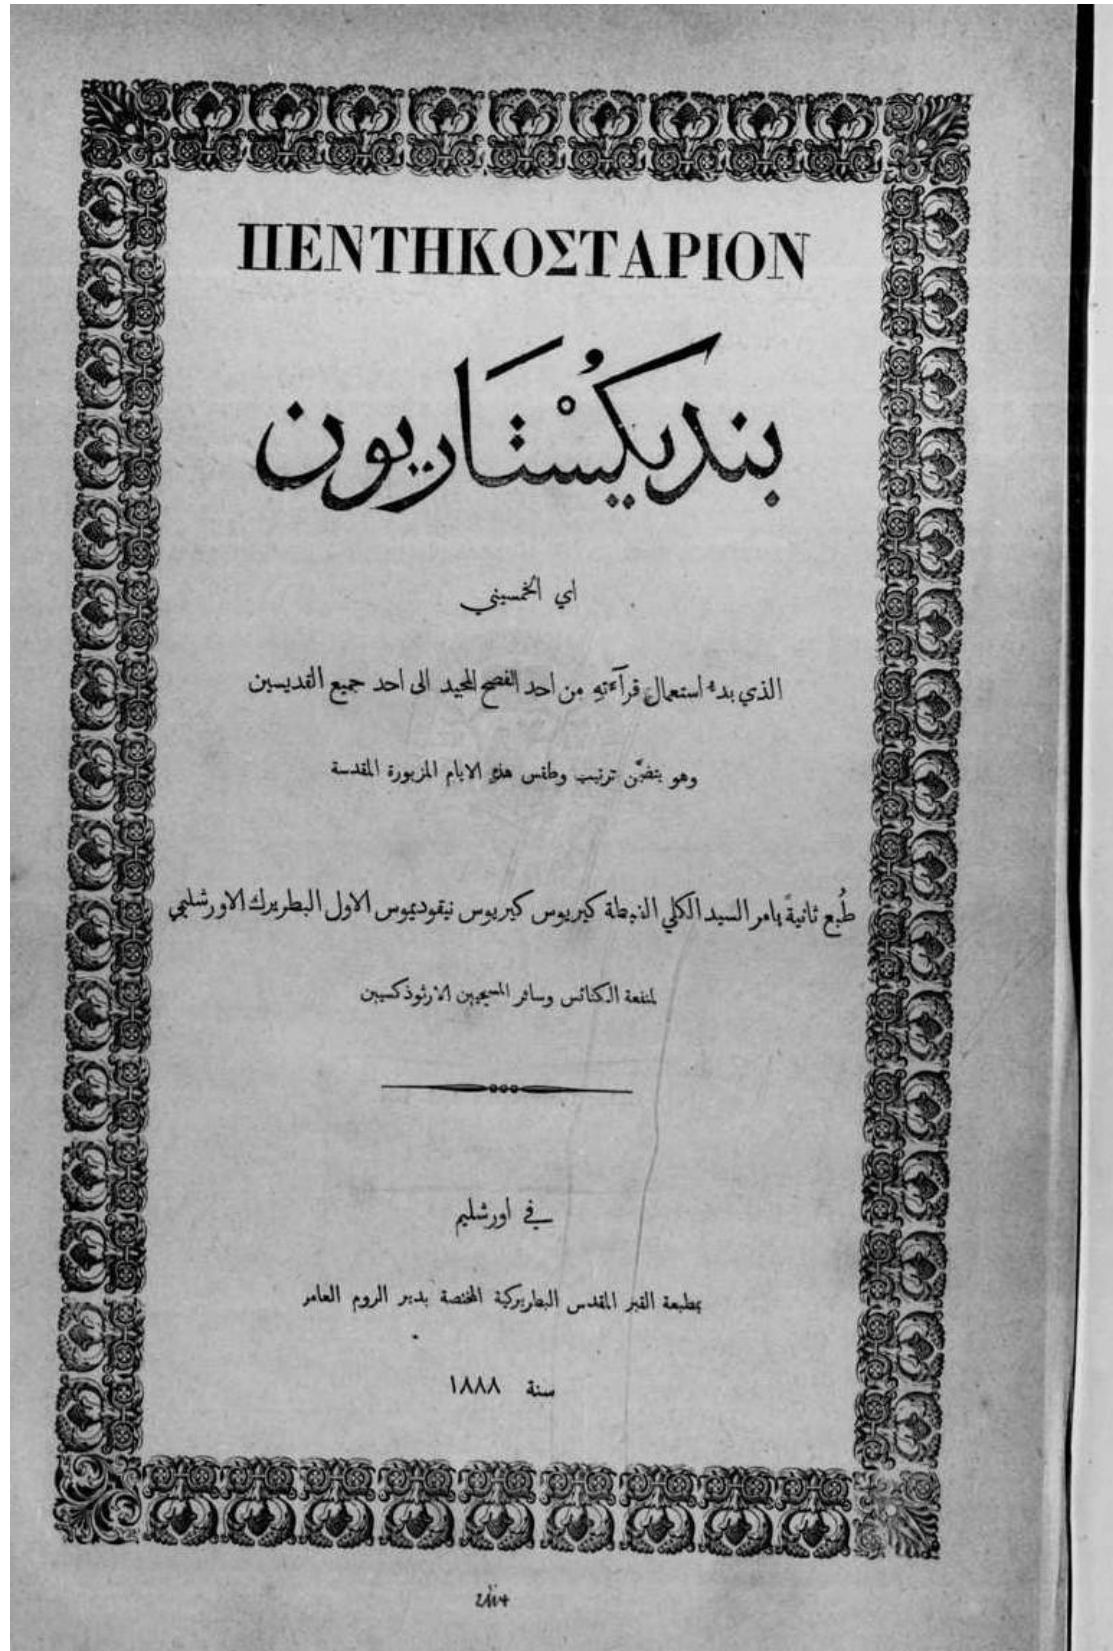 ΠΕΝΤΗΚΟΣΤΑΡΙΟΝ
بنديكُسْتَاريون
اي الخمسيني
الذي بدء استعمال قرآءَتهِ من احد الفصح المجيد الى احد جميع القديسين
وهو يتضمَّن ترتيب وطقس هذه الايام المزبورة المقدسة
طُبع ثانيةً بامر السيد الكلي الغبطة كيريوس كيريوس نيقوديموس الاول البطريرك الاورشليمي
لمنفعة الكنائس وسائر المسيحيين الارثوذكسيين
في اورشليم
بمطبعة القبر المقدس البطريركية المختصة بدير الروم العامر
سنة ١٨٨٨